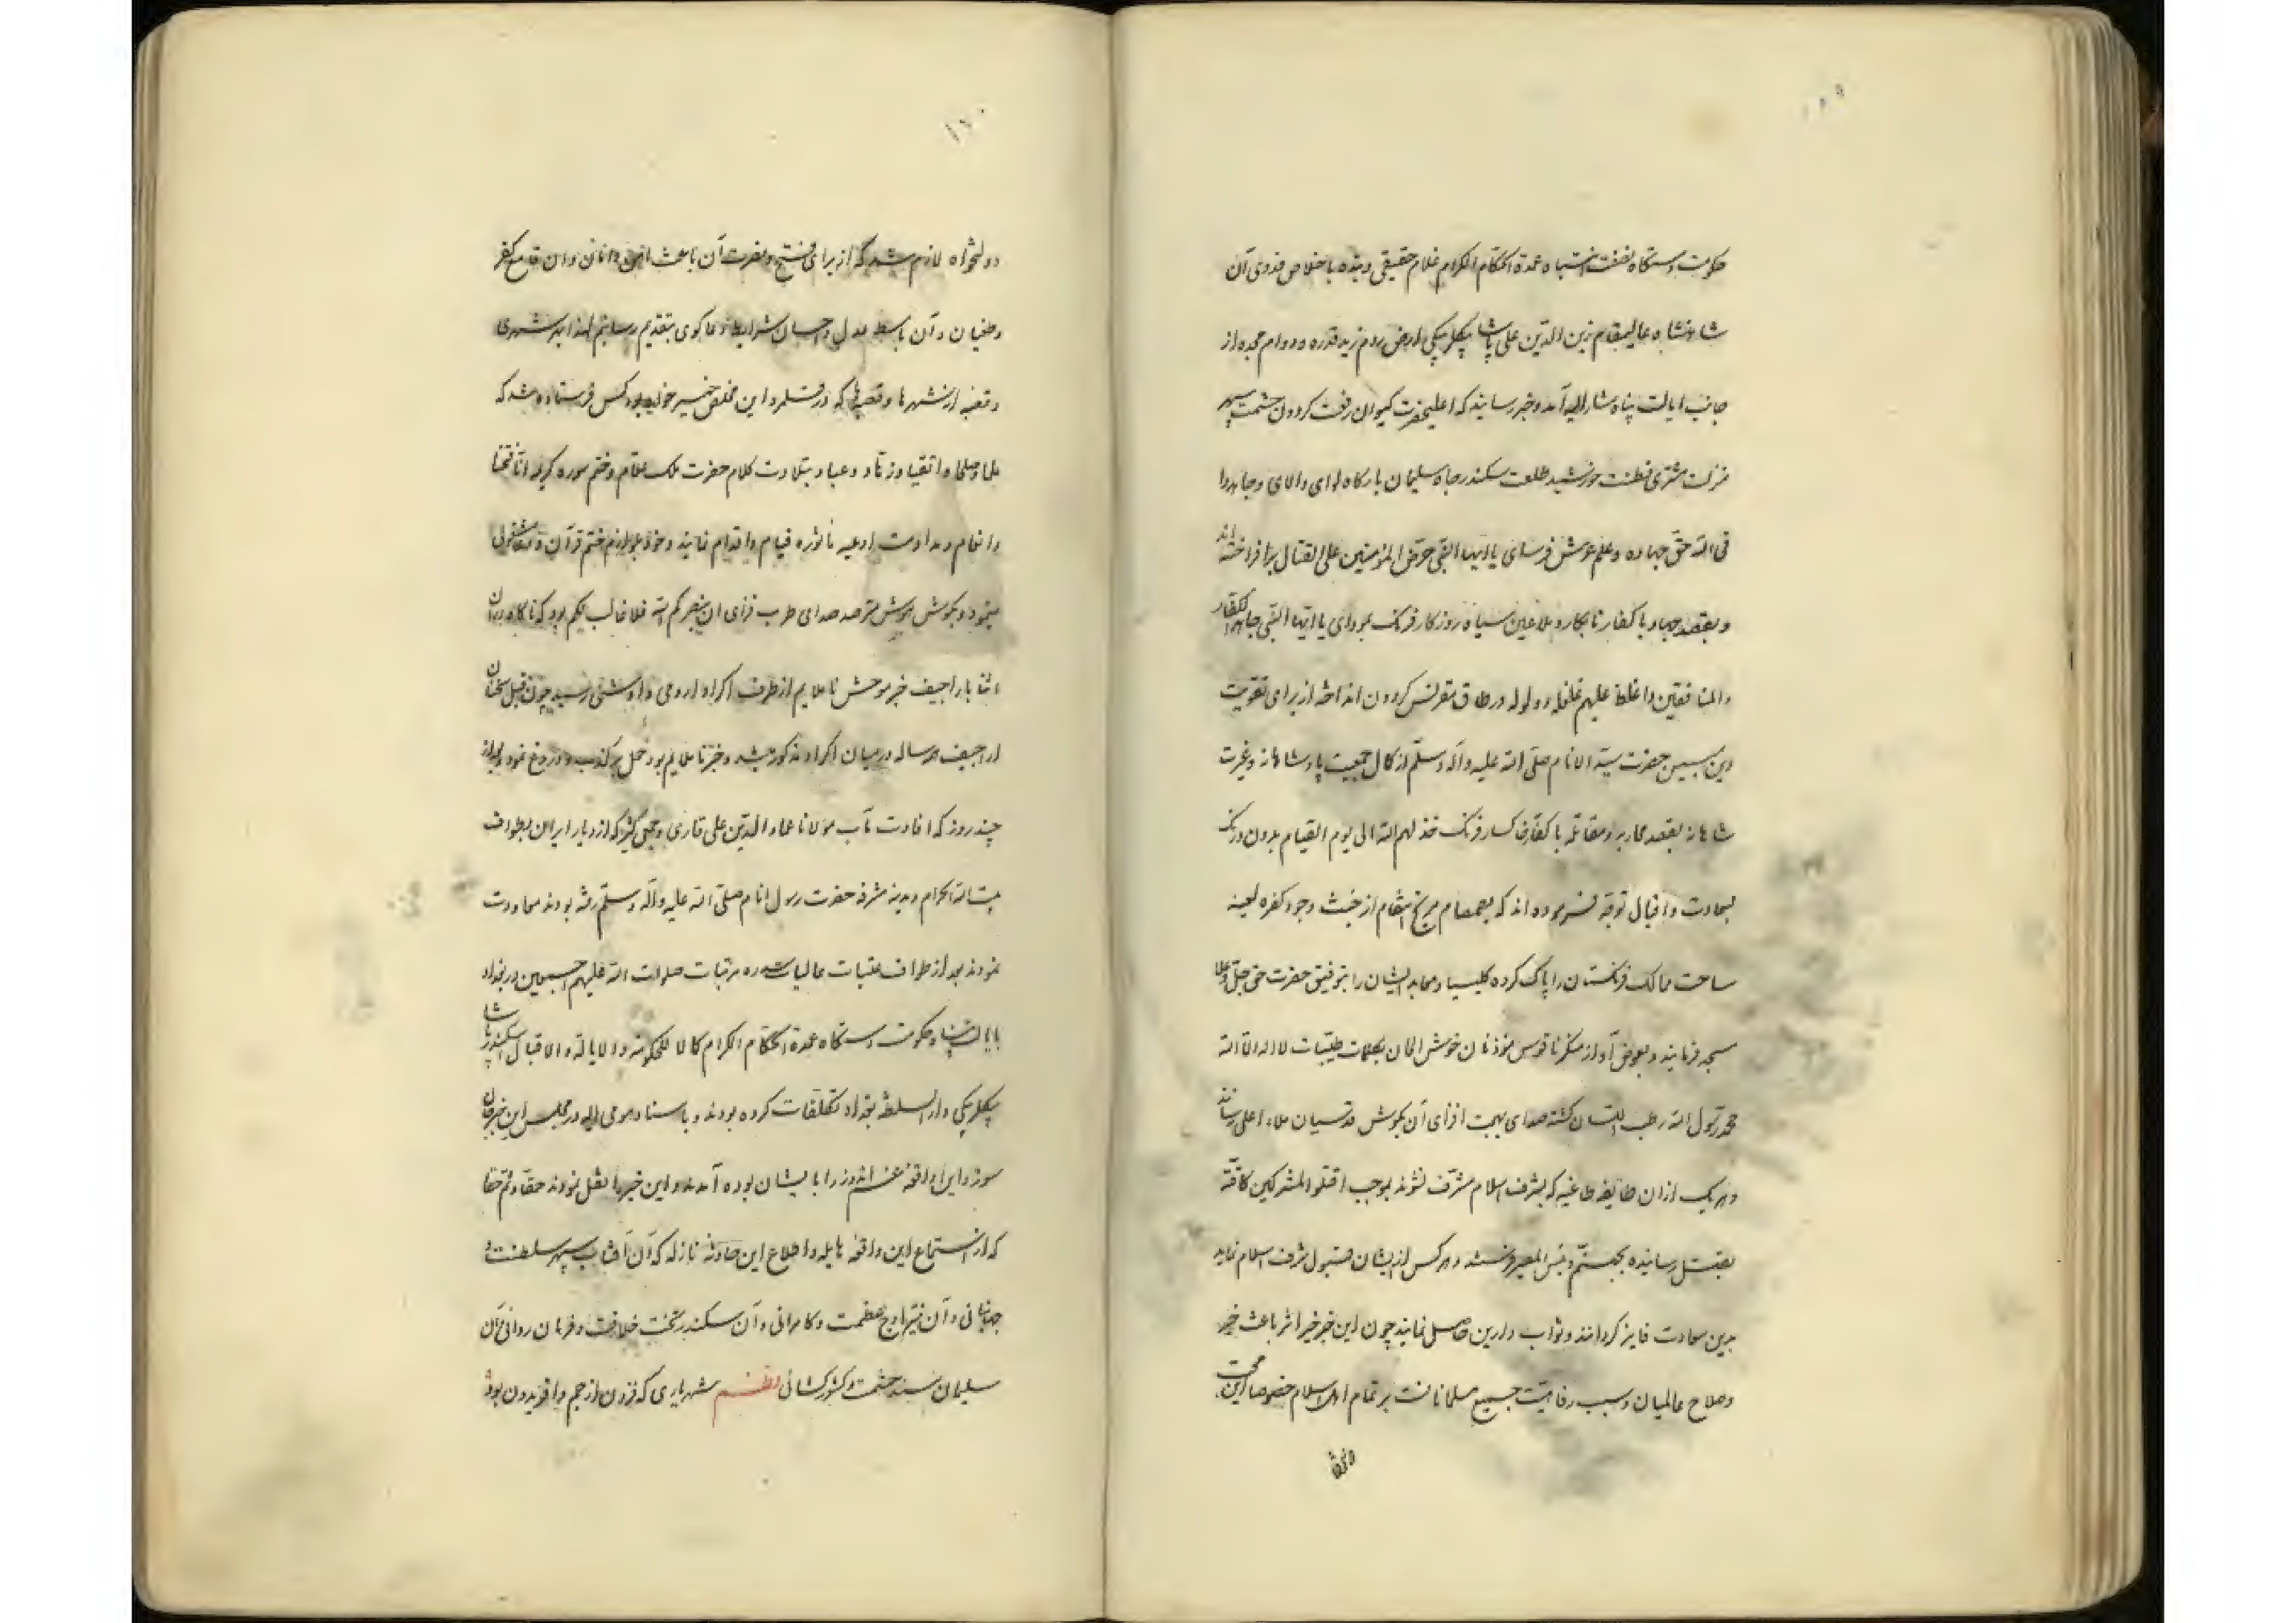 ۱۵۹
حکومت دستگاه نصفت انتباه عمدة الحکام الکرام غلام حقیقی و بنده باخلاص فدوی آن
شاهنشاه عالیمقام زین الدین علی پاشا بیکلربیکی ارض روم زید قدره و دوام مجده از
جانب ایالت پناه مشار الیه آمد و خبر رسانید که اعلیحضرت کیوان رفعت کردون حشمت سپهر
منزلت مشتری فطنت خورشید طلعت سکندر جاه سلیمان بارکاه لوای والای و جاهدوا
فی الله حق جهاده و علم عرش فرسای یا ایها النبی حرض المؤمنین علی القتال برافراخته اند
و بقصد جهاد با کفار نابکار و ملاعین سیاه روزکار فرنک بموءدای یا ایها النبی جاهد الکفار
والمنافقین واغلظ علیهم غلغله و ولوله در طاق مقرنس کردون انداخته از برای تقویت
دین مبین حضرت سید الانام صلی الله علیه وآله وسلم از کمال حمیت پادشاهانه و غیرت
شاهانه بقصد محاربه و مقاتله با کفار خاکسار فرنک خذلهم الله الی یوم القیام بدون درنک
بسعادت و اقبال توجه فرموده اند که بصمصام مریخ انتقام از خبث وجود کفره لعینه
ساحت ممالک فرنکستان را پاک کرده کلیسیا و معابد ایشان را بتوفیق حضرت حق جل وعلا
مسجد فرمایند و بعوض آواز منکر ناقوس مؤذنان خوش الحان بکلمات طیبات لا اله الا الله
محمد رسول الله رطب اللسان کشته صدای بهجت افزای آن بکوش قدسیان ملاء اعلی رسانند
و هر یک ازان طایفه طاغیه که بشرف اسلام مشرف نشوند بموجب اقتلوا المشرکین کافة
بقتل رسانیده بجهنم و بئس المصیر فرستند و هر کس از ایشان قبول شرف اسلام نماید
بدین سعادت فایز کردانند و ثواب دارین حاصل نمایند چون این خبر خیر اثر باعث خیر
و صلاح عالمیان و سبب رفاهیت جمیع مسلمانانست بر تمام اهل اسلام خصوصا این محب
دولتخواه
۱۶۰
دولتخواه لازم شد که از برای فتح و نصرت آن باعث امن و امان و ان قامع کفر
و طغیان و آن باسط عدل و احسان شرایط دعاکوی بتقدیم رسانیم لهذا بهر شهری
و قصبه از شهرها و قصبها که در قلمرو این مخلص خیرخواه بود کس فرستاده شد که
علما و صلحا و اتقیا و زهاد و عباد بتلاوت کلام حضرت ملک علام و ختم سوره کریمه انا فتحنا
و انعام و مداومت ادعیه ماثوره قیام و اقدام نمایند و خود بلوازم ختم قرآن و دعا مشغولی
مینمود و بکوش هوش مترصد صدای طرب فزای ان ینصرکم الله فلا غالب لکم بود که ناکاه دران
اثنا باراجیف خبر موحش ناملایم از طرف اکراد ارومی و اوشنی رسید چون قبل سخنان
اراجیف هر ساله در میان اکراد مذکور میشد و خبر ناملایم بود حمل بر کذب و دروغ نمود و بعد از
چند روز که افادت مآب مولانا عماد الدین علی قاری و جمعی کثیر که از دیار ایران بطواف
بیت الله الحرام و مدینه مشرفه حضرت رسول انام صلی الله علیه وآله وسلم رفته بودند معاودت
نمودند بعد از طواف عتبات عالیات سدره مرتبات صلوات الله علیهم اجمعین در بغداد
بایالت پناه و حکومت دستگاه عمدة الحکام الکرام کمالا للحکومة والایالة والاقبال اسکندر پاشا
بیکلربیکی دار السلطنه بغداد تکلفات کرده بودند و باستاد مومی الیه در مجلس این خبر جان
سوز و این واقعه غم اندوز را بایشان بوده آمدند و این خبر را نقل نمودند حقا و ثم حقا
که از استماع این واقعه هایله و اطلاع این حادثه نازله که آن آفتاب سپهر سلطنت و
جهانبانی و آن نیر اوج عظمت و کامرانی و آن سکندر تخت خلافت و فرمان روائی و آن
سلیمان مسند حشمت و کشورکشائی نظم شهریاری که فزون از جم و افریدون بود